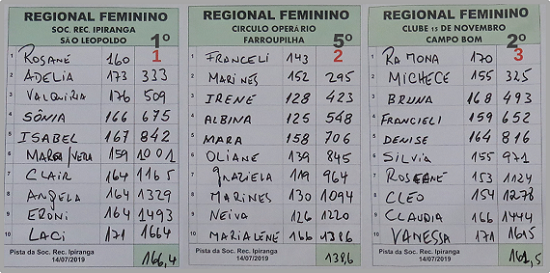 REGIONAL FEMININO
SOC. REC. IPIRANGA
SÃO LEOPOLDO
1º
1 ROSANE 160 1
2 ADELIA 173 333
3 VALQUIRIA 176 509
4 SÔNIA 166 675
5 ISABEL 167 842
6 MARA/VERA 159 1001
7 CLAIR 164 1165
8 ANGELA 164 1329
9 ERONI 164 1493
10 LACI 171 1664
Pista da Soc. Rec. Ipiranga
14/07/2019
166,4
REGIONAL FEMININO
CIRCULO OPERÁRIO
FARROUPILHA
5º
1 FRANCELI 143 2
2 MARINES 152 295
3 IRENE 128 423
4 ALBINA 125 548
5 MARA 158 706
6 OLIANE 139 845
7 GRAZIELA 119 964
8 MARINES 130 1094
9 NEIVA 126 1220
10 MARIALENE 166 1386
Pista da Soc. Rec. Ipiranga
14/07/2019
138,6
REGIONAL FEMININO
CLUBE 15 DE NOVEMBRO
CAMPO BOM
2º
1 RAMONA 170 3
2 MICHELE 155 325
3 BRUNA 168 493
4 FRANCIELI 159 652
5 DENISE 164 816
6 SILVIA 155 971
7 ROSEANE 153 1124
8 CLEO 154 1278
9 CLAUDIA 166 1444
10 VANESSA 171 1615
Pista da Soc. Rec. Ipiranga
14/07/2019
161,5